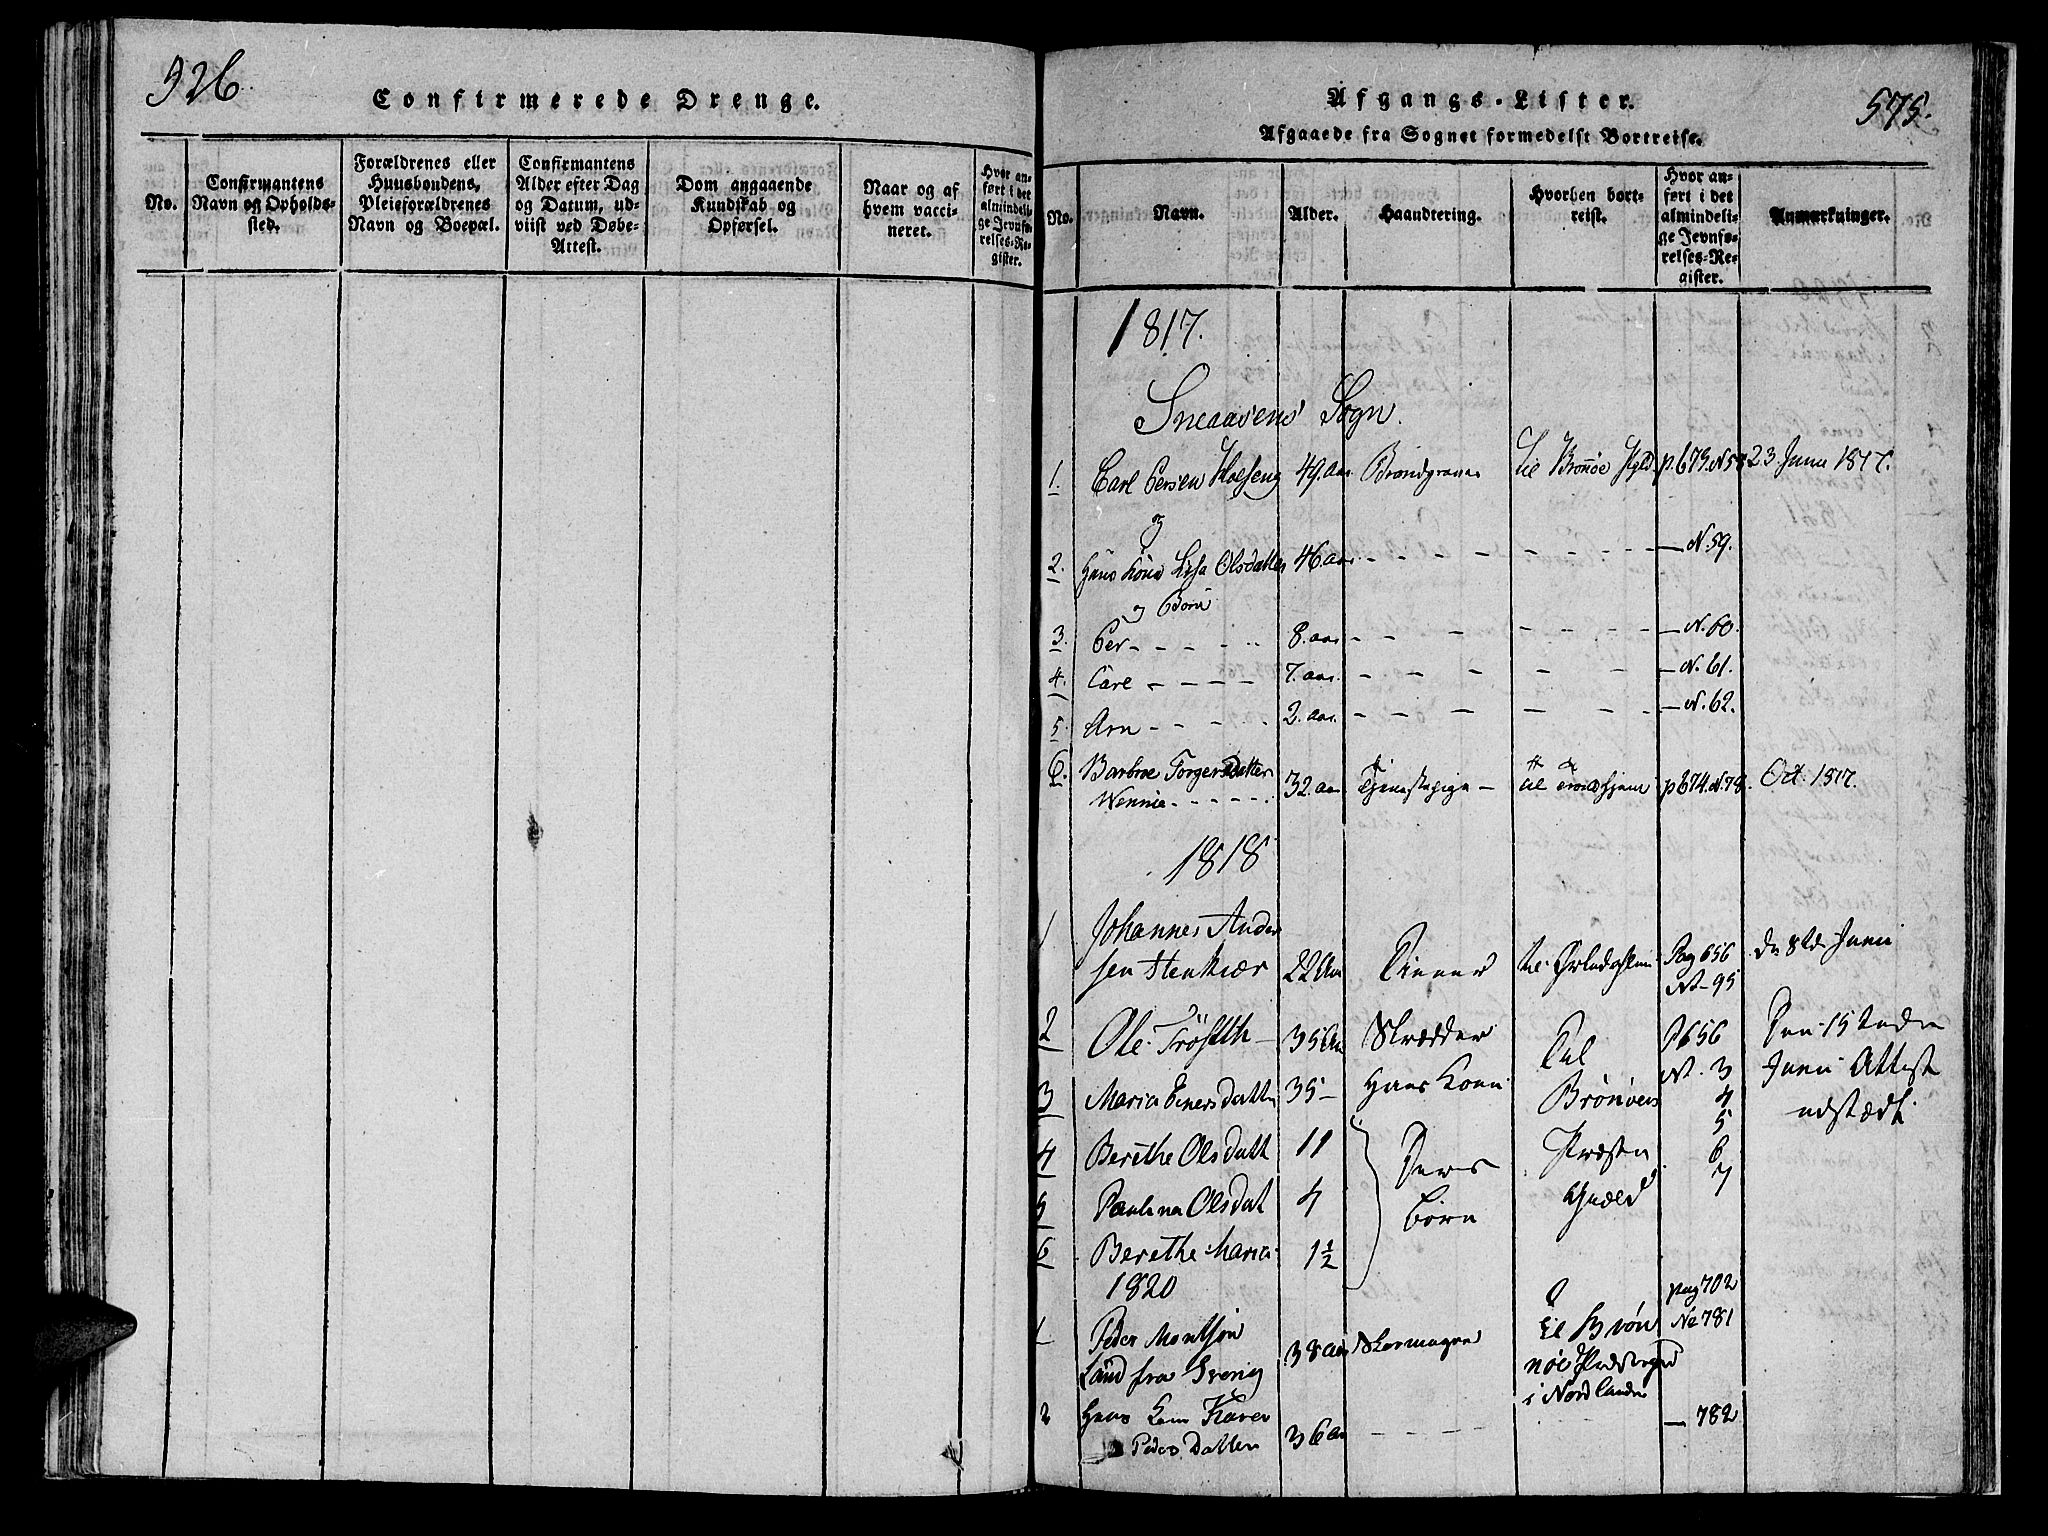 526.
Confirmerede Drenge.
No.
Confirmantens
Navn og Opholds-
sted.
Forældrenes eller
Huusbondens,
Pleieforældrenes
Navn og Boepæl.
Confirmantens
Alder efter Dag
og Datum, ud-
viist ved Døbe-
Attest.
Dom angaaende
Kundskab og
Opførsel.
Naar og af
hvem vacci-
neret.
Hvor an-
ført i det
almindeli-
ge Jevnfø-
relses-Re-
gister.
Afgangs-Lister.
575.
Afgaaede fra Sognet formedelst Bortreise.
No.
Navn.
Alder.
Haandtering.
Hvorhen bort-
reist.
Hvor an-
ført i det
almindeli-
ge Jevnfø-
relses-Re-
gister.
Anmærkninger.
1817.
Sneaasens Sogn.
1. Carl Persen 49. aar til Brønøe Pgld. p. 673. N 58 23 Juni 1817.
og
2. Hans Kone Lisa Olsdatter 46. aar. - - - - - - - - — N. 59.
og Børn
3. Per - - - - - 8. aar - - - - - - — N. 60.
4. Carl - - - - 7. aar. - - - - - - — N. 61.
5. Arn - - - - 2. aar. - - - - - - — N. 62.
6. Barbroe Torgersdatter
Wennie - - - - - - 32. aar Tjenestepige - til Trondhjem p 674. N. 78. Oct. 1817.
1818
1 Johannes Ander
sen Stenkiær 22 Aar Tiener til Pag 656
N - 95 d. 8de Juni
2 Ole Tröseth 35 Aar Skrædder Til P 656
N. 3 Den 15
Juni Attest
3 Maria Einersdatter 35 - Hans Kone Brönöens 4
5 udstædt.
4 Berethe Olsdatt 11 Deres Præste 6
7
5 Paulina Olsdat 4 Börn Gield
6 Berethe Maria 1½
1820 pag 702
1 Peder Montsön til Brön No 781
Land fra Sverig 38 aar nöe Præstegield
i Nordlande
2 Hans Kone Karen — 782
Peders Datter 36 aar - - - - -